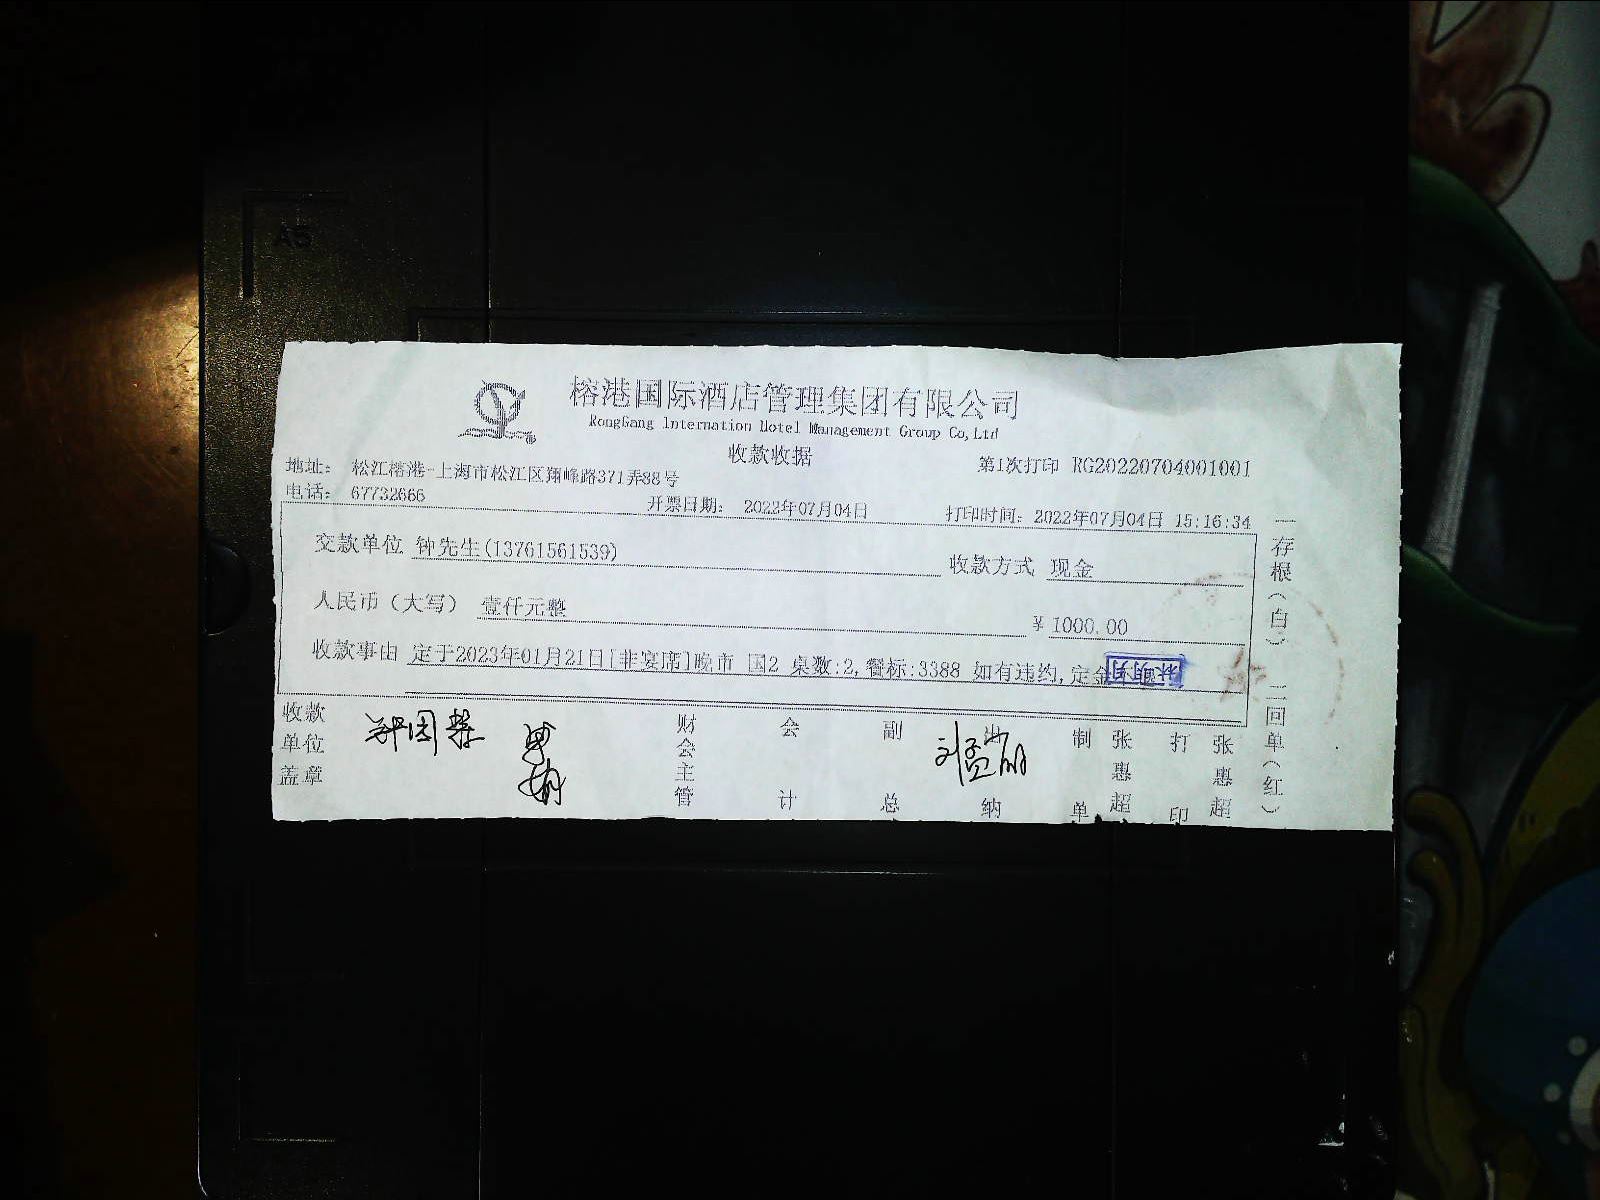 榕港国际酒店管理集团有限公司
RongGang Internation Hotel Management Group Co,Ltd
收款收据
第1次打印 RG20220704001001
地址： 松江榕港-上海市松江区翔峰路371弄88号
电话： 67732666
开票日期： 2022年07月04日
打印时间： 2022年07月04日 15:16:34
交款单位 钟先生(13761561539)
收款方式 现金
人民币（大写） 壹仟元整
¥ 1000.00
收款事由 定于2023年01月21日[非宴席]晚市 国2 桌数:2,餐标:3388 如有违约,定金
收款单位盖章
财会主管
会计
副总
出纳
制单
张惠超
打印
张惠超
一存根（白）
二回单（红）
A5